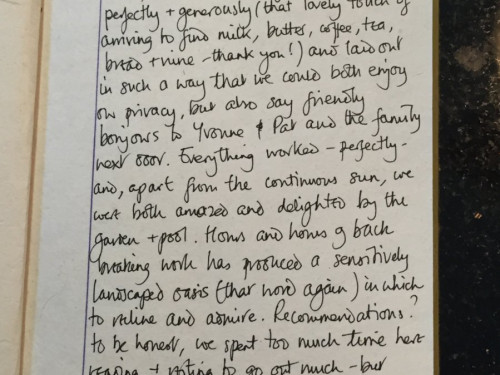 perfectly + generously (that lovely touch of
arriving to find milk, butter, coffee, tea,
bread + wine - thank you!) and laid out
in such a way that we could both enjoy
our privacy, but also say friendly
bonjours to Yvonne & Pat and the family
next door. Everything worked - perfectly -
and, apart from the continuous sun, we
were both amazed and delighted by the
garden + pool. Hours and hours of back
breaking work has produced a sensitively
landscaped oasis (that word again) in which
to recline and admire. Recommendations?
to be honest, we spent too much time here
+ to go out much - but